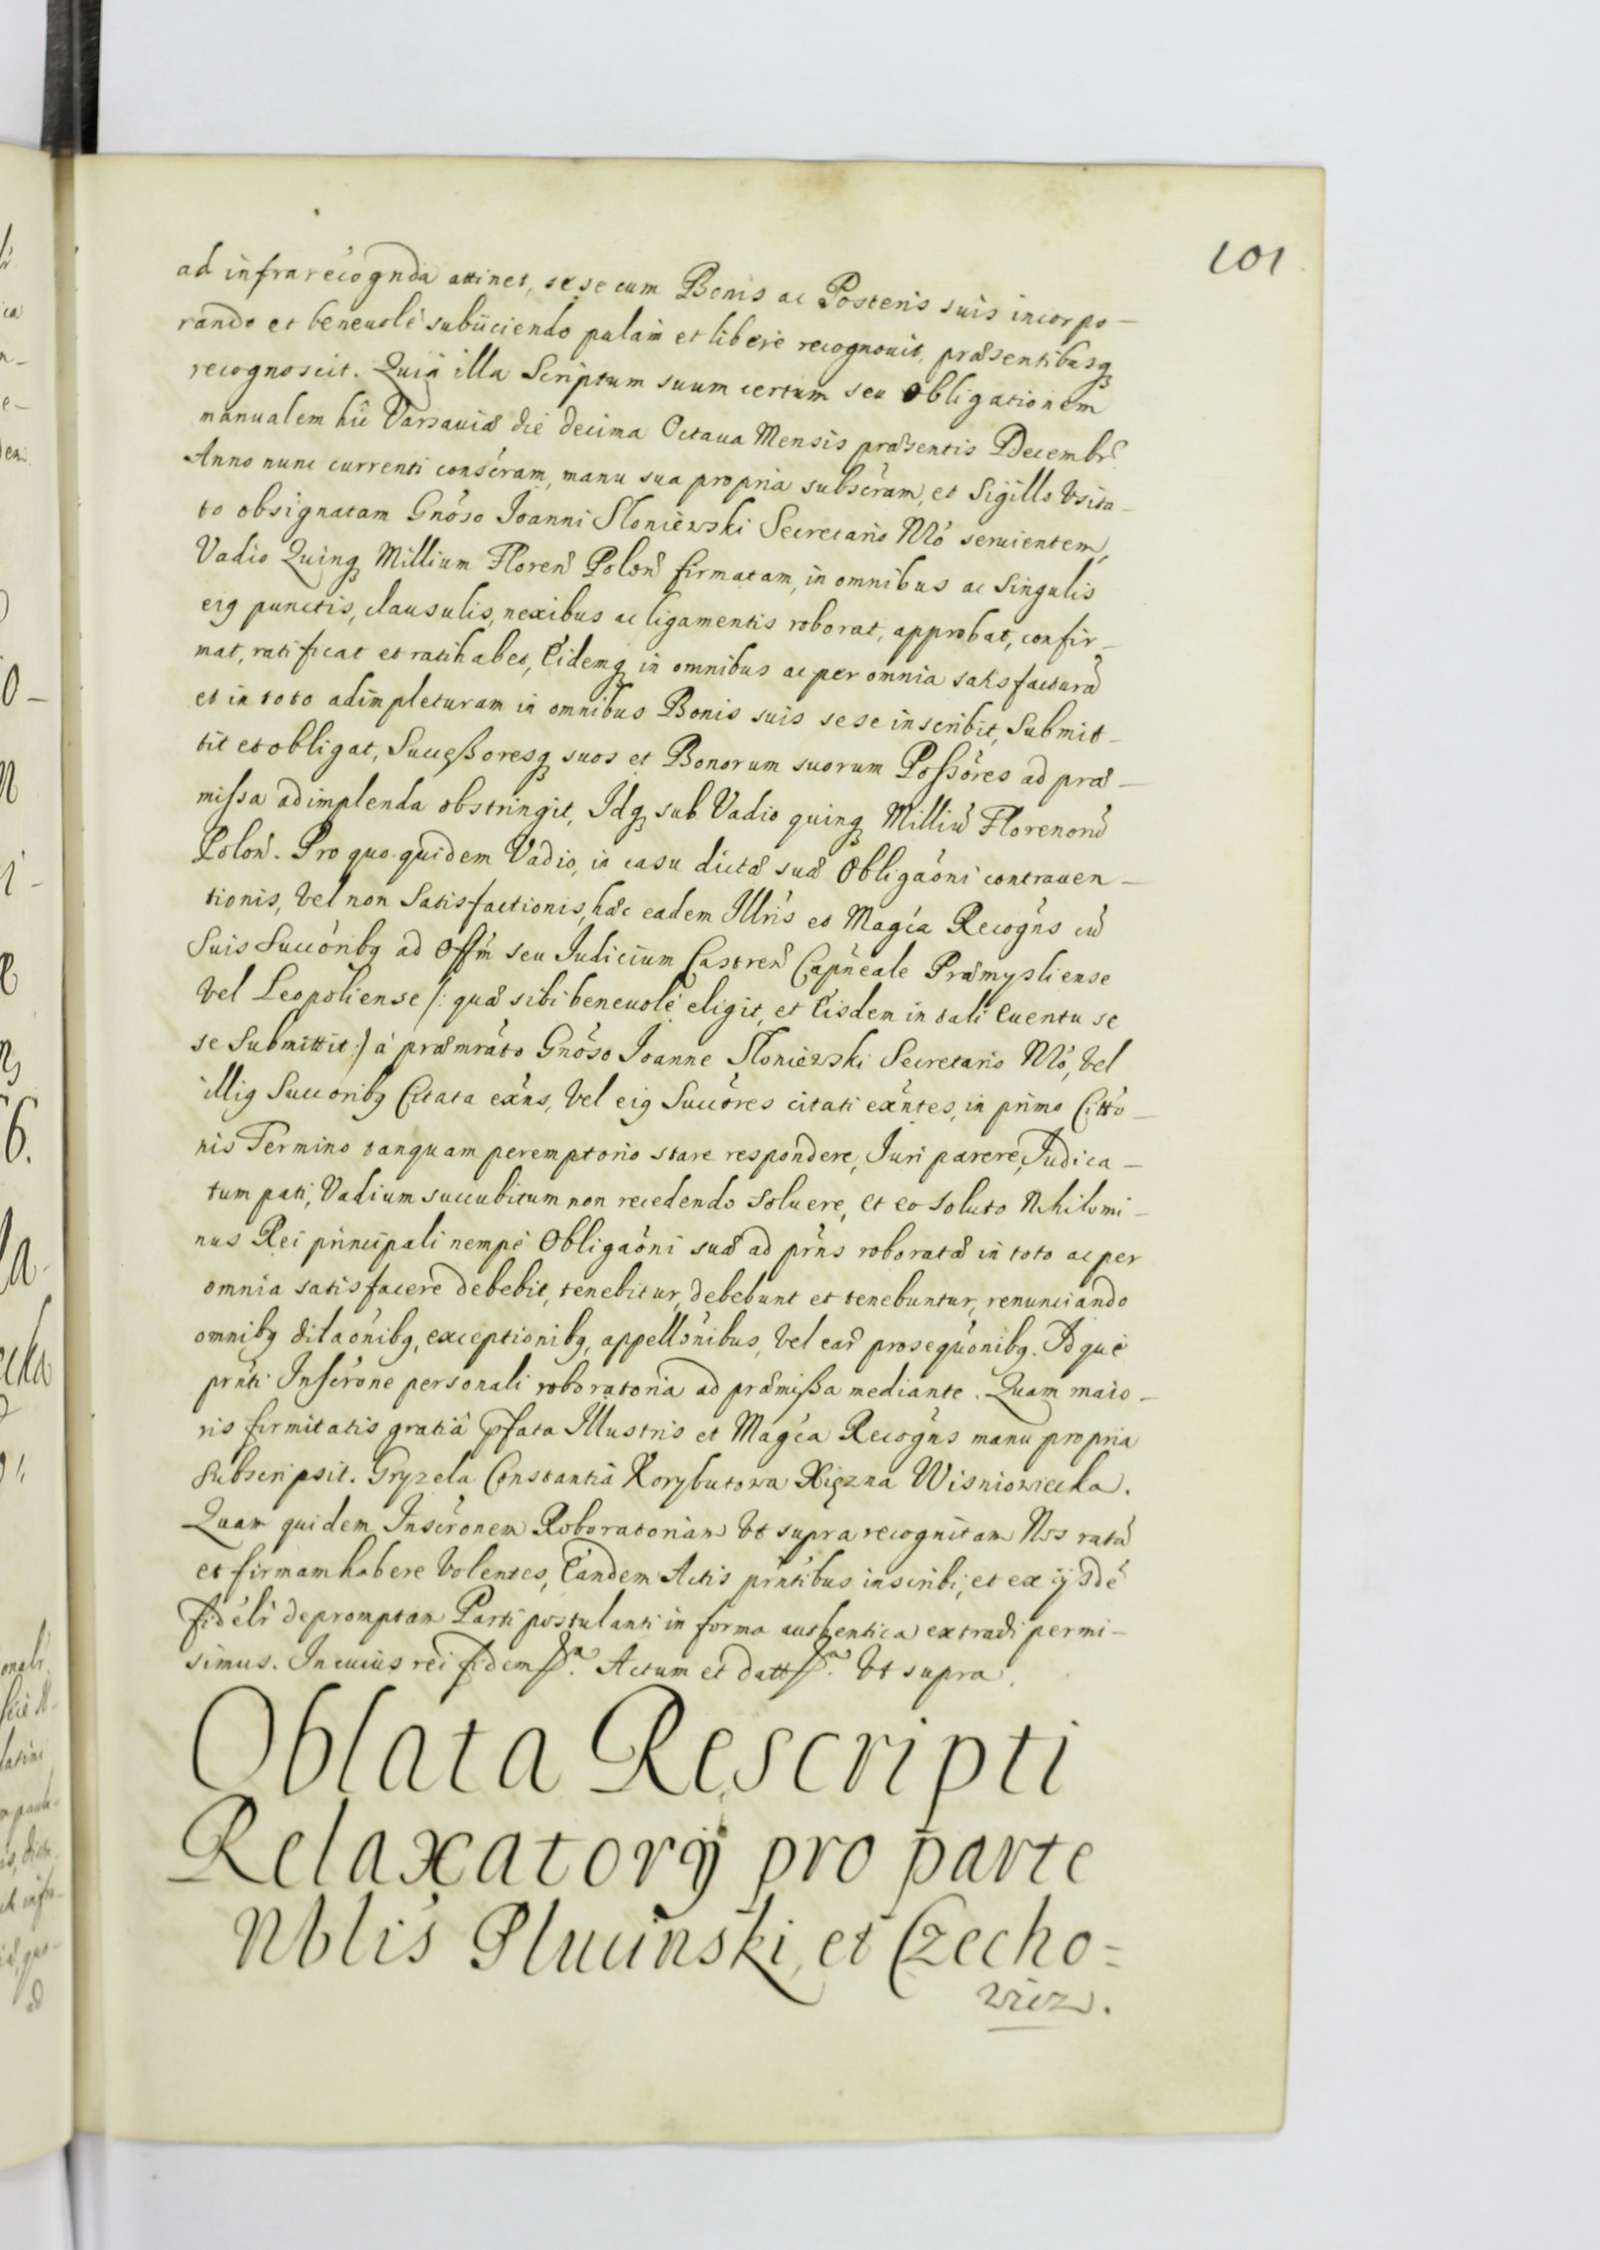 101
ad infrarecognda attinet, sese cum Bonis ac Posteris suis incorpo-
rando et beneuolè subiiciendo palàm et liberè recognouit, præsentibusq
recognoscit. Quià illa Scriptum suum certum seu obligationem
manualem hîc Varsauiæ die decima Octaua Mensis præsentis Decembr
Anno nunc currenti conscram, manu sua propria subscram, et Sigillo Vsita-
to obsignatam Gnoso Joanni Słoniewski Secretario Nro seruientem,
Vadio Quinq Millium Floren Polon firmatam, in omnibus ac singulis
eig punctis, clausulis, nexibus ac ligamentis roborat, approbat, confir-
mat, ratificat et ratihabet, Eidemq in omnibus ac per omnia satisfacturã
et in toto adimpleturam in omnibus Bonis suis sese inscribit, Submit-
tit et obligat, Succeßoresq suos et Bonorum suorum Poßores ad præ-
mißa adimplenda obstringit, Idq sub Vadio quinq Milliũ Florenorũ
Polon. Pro quo quidem Vadio, in casu dictæ suæ Obligaoni contrauen-
tionis, Vel non Satisfactionis, hæc eadem Illris et Magca Recogns cũ
Suis Succoribq ad Offm seu Judicium Castren Capneale Præmysliense
Vel Leopoliense /: quæ sibi beneuolè eligit, et Eisdem in tali Euentu se
se Submittit :/ à præmrato Gnoso Joanne Słoniewski Secretario Nro, Vel
illig Succoribq Citata exns, Vel eig Succores citati exntes, in primo Citto-
nis Termino tanquam peremptorio stare respondere, Juri parere, Judica-
tum pati, Vadium succubitum non recedendo Soluere, et eo Soluto Nihilomi-
nus Rei principali nempè Obligaoni suæ ad prns roboratæ in toto ac per
omnia satisfacere debebit, tenebitur, debebunt et tenebuntur, renunciando
omnibq dilaonibq, exceptionibq, appellonibus, Vel ear prosequonibq. Id què
prnti Inscrone personali roboratoria ad præmißa mediante. Quam maio-
ris firmitatis gratiâ pfata Illustris et Magca Recogns manu propria
Subscripsit. Gryzela Constantia Korybutowa Xiężna Wisniowiecka.
Quam quidem Inscronem Roboratoriam Vt supra recognitam Nos ratã
et firmam habere Volentes, Eandem Actis prntibus inscribi, et ex ijsdẽ
fidelr depromptam Parti postulanti in forma authentica extradi permi-
simus. In cuius rei fidem p. Actum et datt p. Vt supra.
Oblata Rescripti
Relaxatorij pro parte
Nblis Plucinski, et Czecho=
wicz.